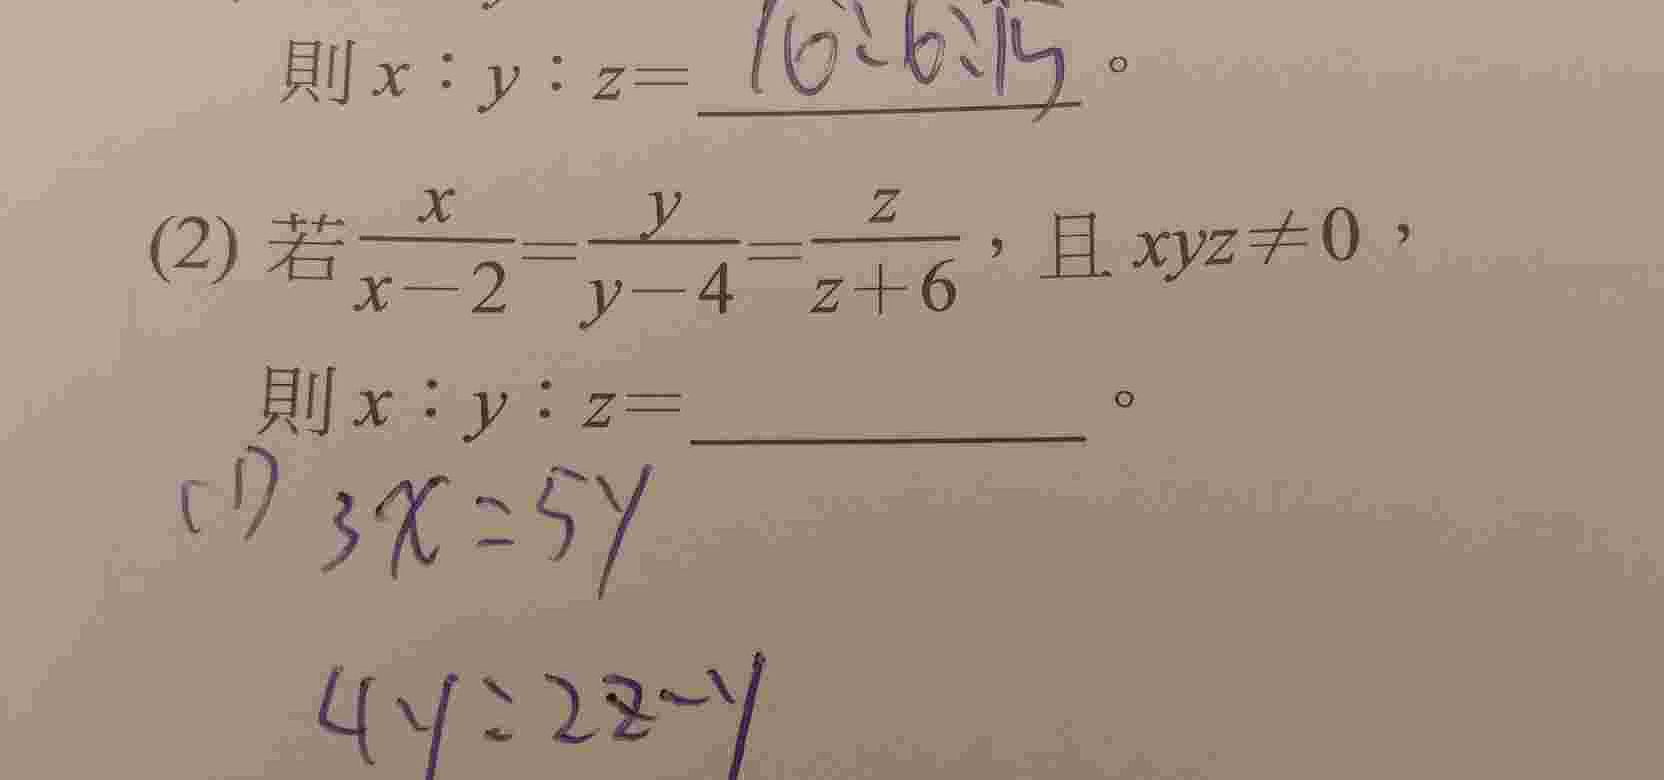 則 x：y：z= 10：6：15 。
(2) 若 x/(x－2)=y/(y－4)=z/(z＋6)，且 xyz≠0，
則 x：y：z=＿＿＿＿。
(1) 3x=5y
4y=2z-y